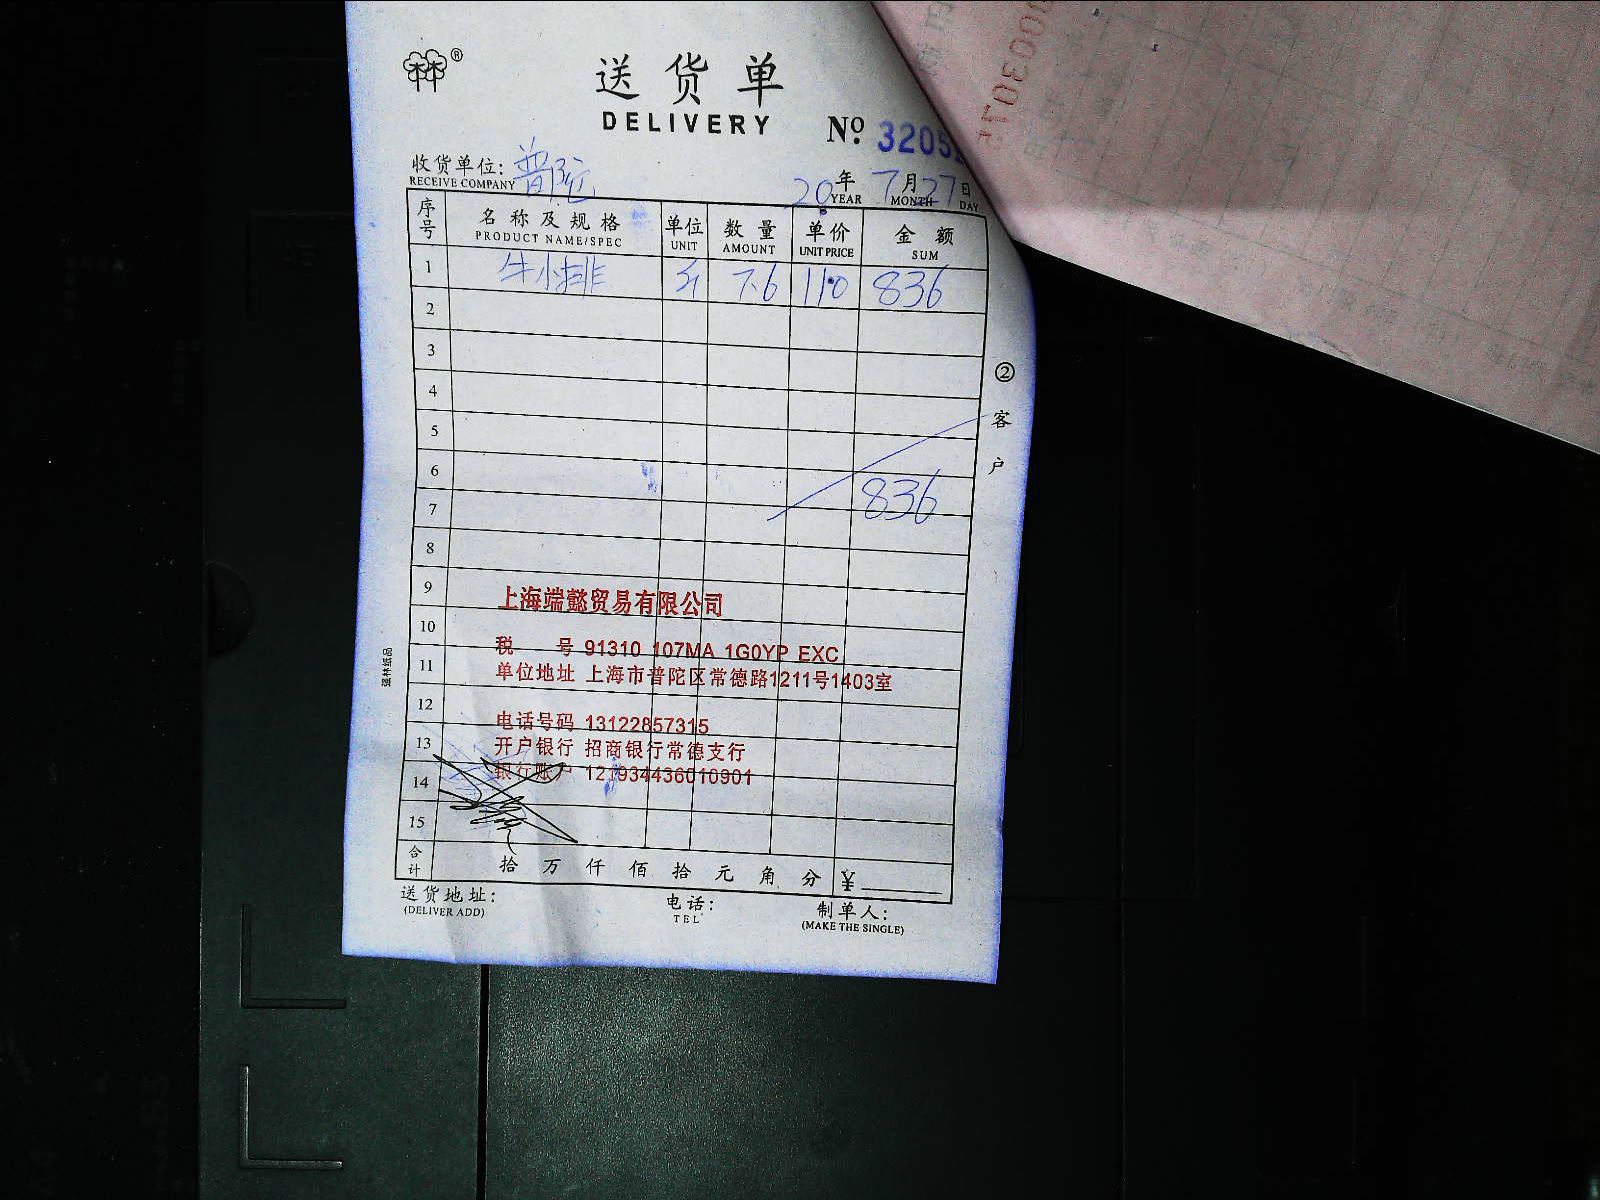 林®
送货单
DELIVERY
No. 3205
收货单位: 普陀 20年7月27日
RECEIVE COMPANY YEAR MONTH DAY
序号 名称及规格 单位 数量 单价 金额
PRODUCT NAME/SPEC UNIT AMOUNT UNIT PRICE SUM
1 牛小排 斤 7.6 110 836
2
3
4
5
6
836
7
8
9
上海端懿贸易有限公司
10
税 号 91310 107MA 1G0YP EXC
11
单位地址 上海市普陀区常德路1211号1403室
12
电话号码 13122857315
13
开户银行 招商银行常德支行
银行账户 121934436010901
14
15
合计 拾 万 仟 佰 拾 元 角 分 ¥
送货地址: 电话: 制单人:
(DELIVER ADD) TEL (MAKE THE SINGLE)
② 客户
强林纸品